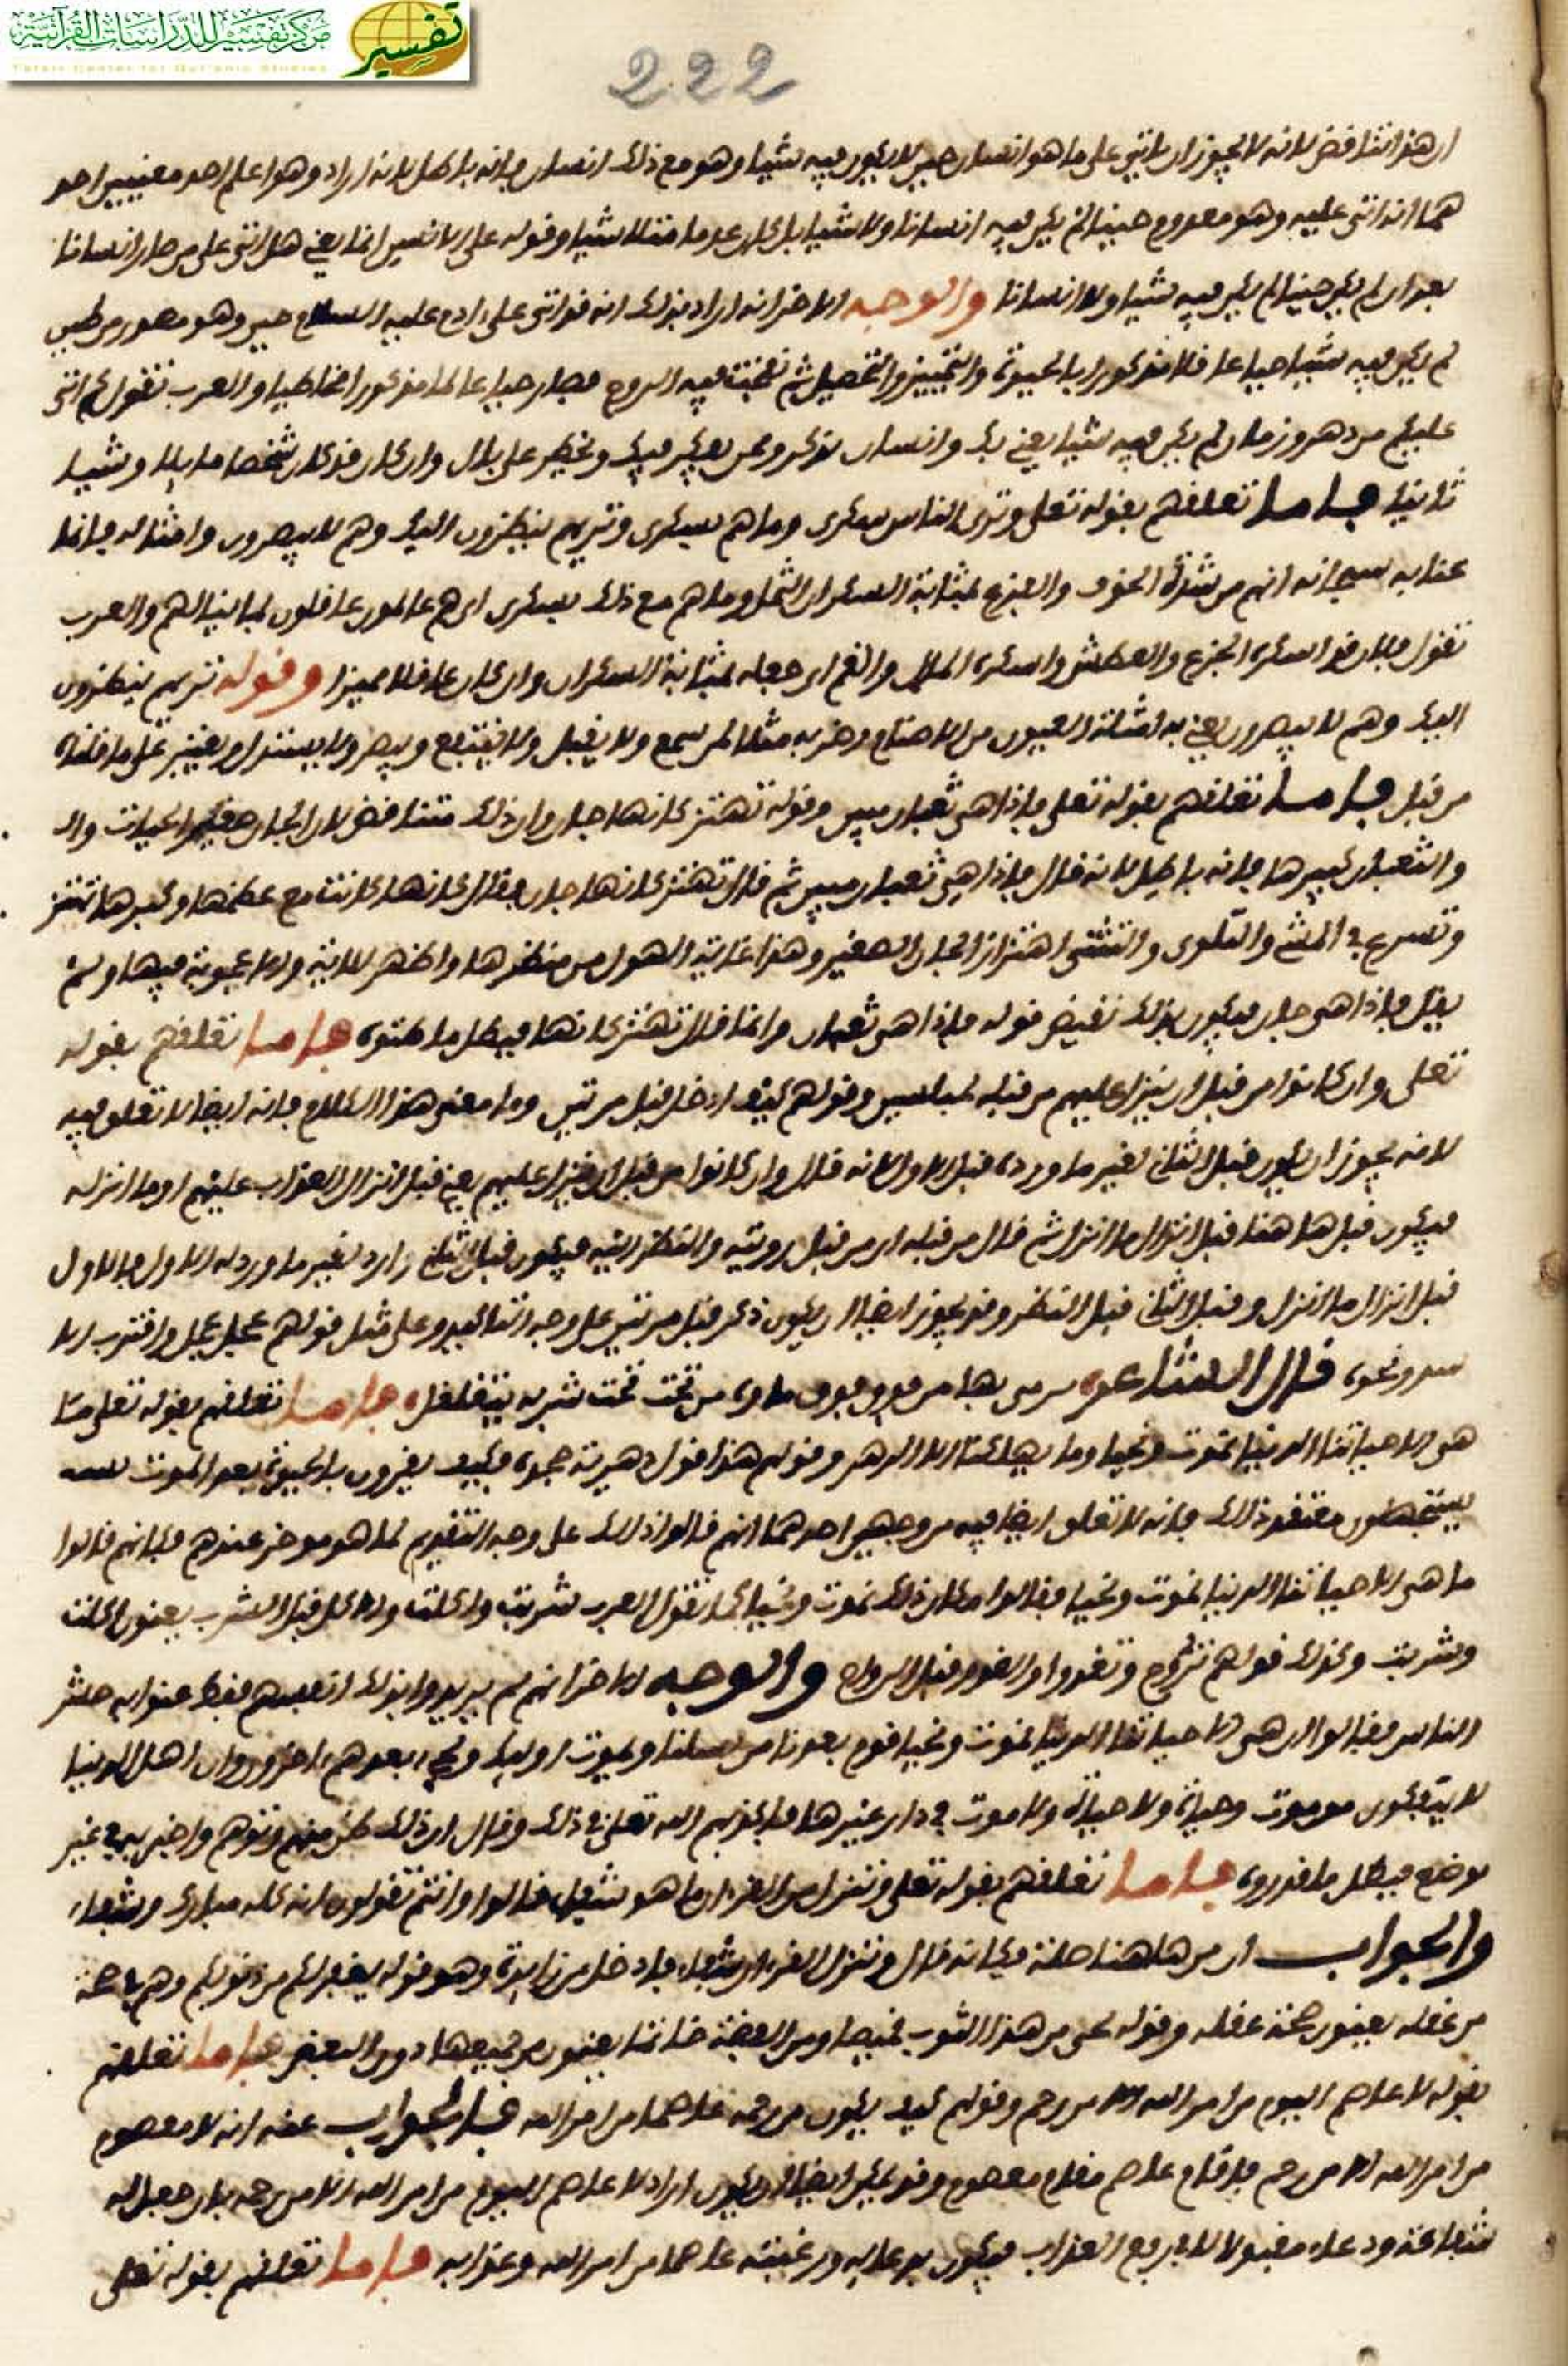 مركز تفسير للدراسات القرآنية
تفسير
Tafsir Center for Qur'anic Studies
222
ان هذا تناقض لانه لا يجوز ان ياتي على ما هو انسان حين لا يكون فيه شيا وهو مع ذلك انسان فانه باطل لانه اراد وهو اعلم احد معنيين احد
هما انه اتى عليه وهو معدوم حينا لم يكن فيه انسانا ولا شيا بل كان عدما متلاشيا وقوله على الانسن انما يعني هل اتى على من صار انسانا
بعد ان لم يكن حينا لم يكن فيه شيا ولا انسانا والوجه الاخر انه اراد بذلك انه قد اتى على ادم عليه السلام حين وهو مصور من طين
لم يكن فيه شيا حيا عاقلا مذكورا بالحيوة والتمييز والتحصيل ثم نفخت فيه الروح فصار حيا عالما مذكورا مخاطبا والعرب تقول كم اتى
عليكم من دهر وزمان لم يكن فيه شيا يعني بك وانسان تذكر وممن يفكر فيك وتخطر على بال وان كان قد كان شخصا ماثلا وشيا
ثابتا فاما تعلقهم بقوله تعلى وترى الناس سكرى وما هم بسكرى وتريهم ينظرون اليك وهم لا يبصرون وامثاله فانما
عنا به سبحانه انهم من شدة الخوف والفزع بمثابة السكران الثمل وما هم مع ذلك بسكرى اي هم عالمون عاقلون لما ينالهم والعرب
تقول فلان قد اسكره الجزع والعطش واسكره المال والغم اي جعله بمثابة السكران وان كان عاقلا مميزا وقوله تريهم ينظرون
اليك وهم لا يبصرون يعني به امثلة العيون من الاصنام وضربه مثلا لمن يسمع ولا يقبل ولا ينتفع ويبصر ولا يستدل ويعتبر على ما قلناه
من قبل فاما تعلقهم بقوله تعلى فاذا هي ثعبان مبين وقوله تهتز كانها جان وان ذلك متناقض لان الجان صغير الحيات وال
والثعبان كبيرها فانه باطل لانه قال فاذا هي ثعبان مبين ثم قال تهتز كانها جان فقال كانها كانت مع عظمها وكبرها تهتز
وتسرع في المشي والتلوي والتثني اهتزاز الجان الصغير وهذا غاية الهول من منظرها واظهر للاية والاعجوبة فيها ولم
يقل فاذا هي جان فيكون بذلك نقيض قوله فاذا هي ثعبان وانما قال تهتز كانها فبطل ما ظنوه فاما تعلقهم بقوله
تعلى وان كانوا من قبل ان ينزل عليهم من قبله لمبلسين وقولهم كيف ادخل قبل مرتين وما معنى هذا الكلام فانه ايضا لا تعلق فيه
لانه يجوز ان يكون قبل الثاني لغير ما ورد له قبل الاول لانه قال وان كانوا من قبل ان ينزل عليهم يعني قبل انزال العذاب عليهم او ما انزله
فيكون قبل هاهنا قبل انزال ما انزل ثم قال من قبله اي من قبل رويته والنظر اليه فيكون قبل الثاني وارد لغير ما ورد له الاول فالاول
قبل انزال ما انزل وقبل الثاني قبل النظر وقد يجوز ايضا ان يكون ذكر قبل مرتين على وجه التاكيد وعلى مثل قولهم عجل عجل واقترب الا
قال الشاعر من فوق ماوه من تحت تحت يتغلغل فاما تعلقهم بقوله تعلى ما
هي الا حياتنا الدنيا نموت ونحيا وما يهلكنا الا الدهر وقولهم هذا قول دهرية فكيف يقرون بالحيوة بعد الموت
ذلك فانه لا تعلق ايضا فيه من وجهين احدهما انهم قالوا ذلك على وجه التقديم لما هو موخر عندهم فكانهم قالوا
ما هي الا حياتنا الدنيا نموت ونحيا فقالوا مكان ذلك نموت ونحيا كما تقول العرب شربت واكلت والاكل قبل الشرب يعنون اكلت
وشربت وكذلك قولهم تروح وتغدوا والغدو قبل الرواح والوجه الاخر انهم لم يريدوا بذلك انفسهم فقط
الناس فقالوا ان هي الا حياتنا الدنيا نموت ونحيا قوم بعدنا من نسلنا وان اهل الدنيا
لا ينفكون من موت وحياة ولا حياة ولا موت في دار غيرها فاكذبهم الله تعلى في ذلك وقال ان ذلك ظن منهم وتوهم واخبر به في غير
موضع فبطل ما قدروه فاما تعلقهم بقوله تعلى وننزل من القران ما هو شفاء قالوا وانتم تقولون انه كله مبارك وشفاء
والجواب ان من هاهنا صلة فكانه قال وننزل القران شفاء فادخل من زايدة وهو قوله يغفر لكم من ذنوبكم وهم صحة
من عقله يعنون صحة عقله وقوله من هذا الثوب قميصا ومن الفضة خاتما يعنون من جميعها دون البعض فاما تعلقهم
بقوله لا عاصم اليوم من امر الله الا من رحم وقولهم كيف يكون من رحمه عاصما من امر الله فالجواب عنه انه لا معصوم
من امر الله الا من رحم فاقام عاصم مقام معصوم وقد يمكن ايضا ان يكون اراد لا عاصم اليوم من امر الله الا من رحمه بان جعل له
شفاعة ودعاء مقبولا لا يرفع العذاب فيكون بدعايه ورغبته عاصما من امر الله وعذابه فاما تعلقهم بقوله تعلى